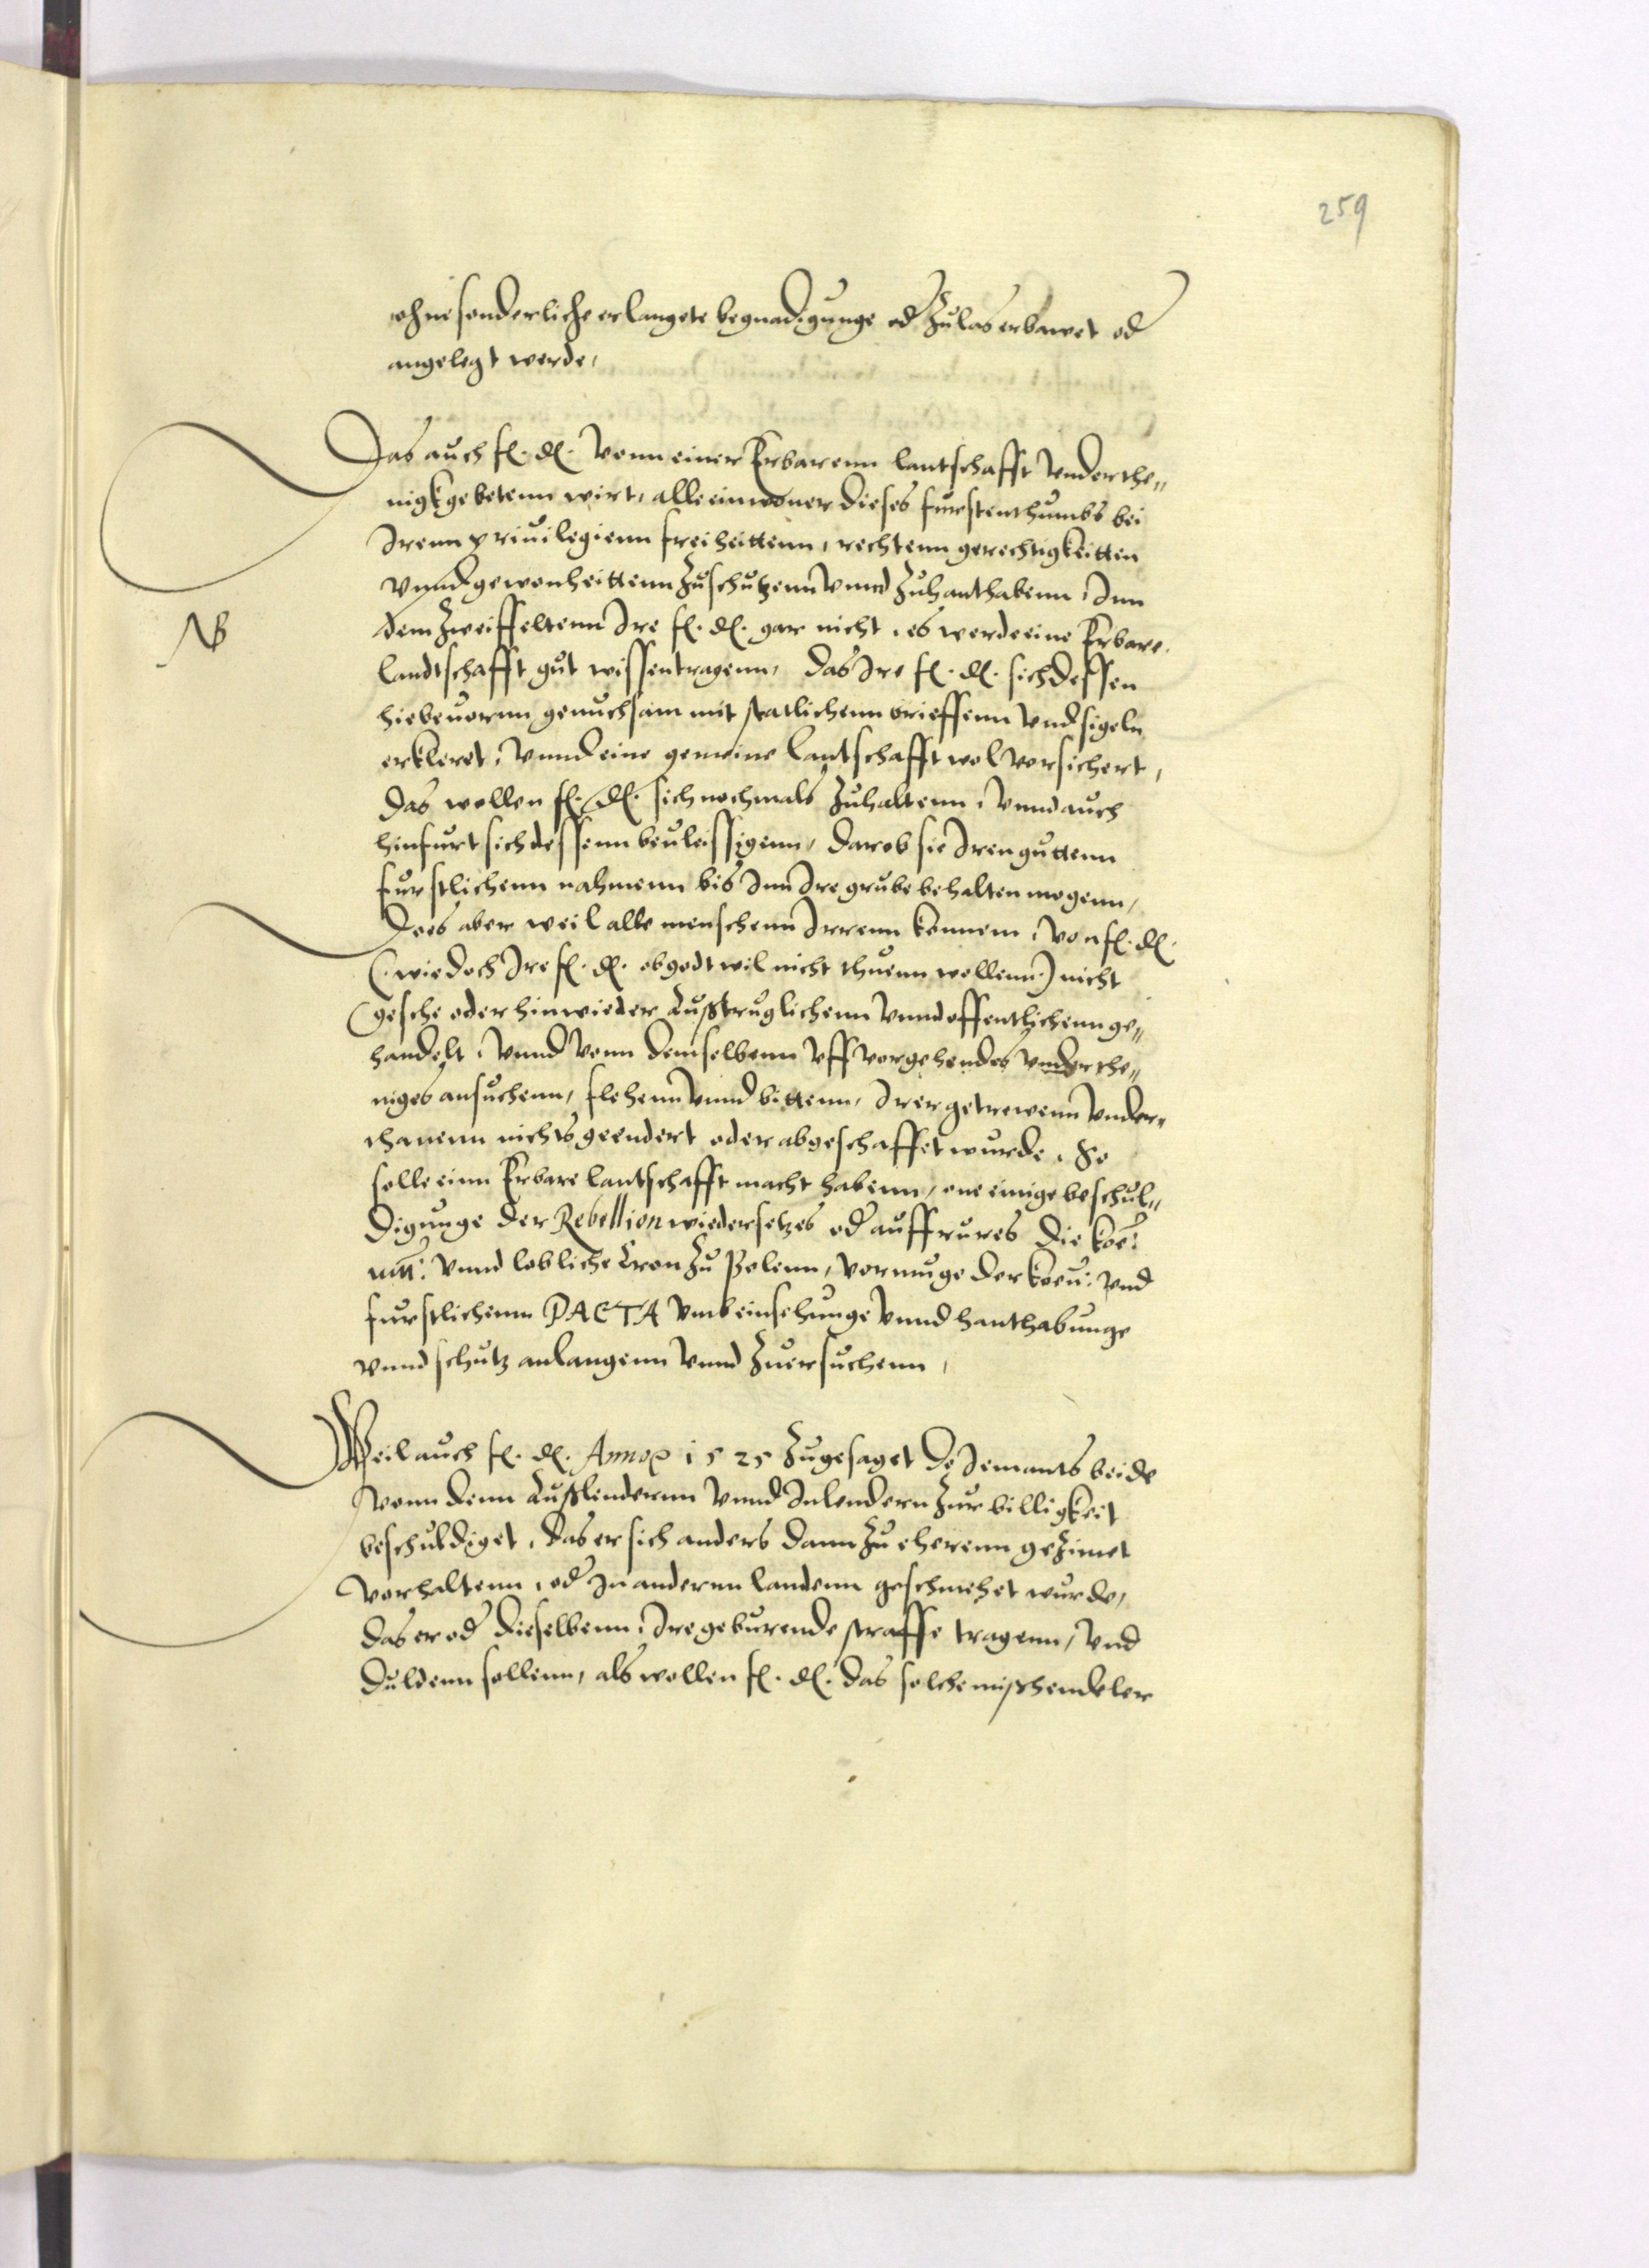 259
ohne sonderliche erlangete begnadigunge od Zulas erbawet od
angelegt werde,
Das auch fl. dl. vonn einer Erbarenn lantschafft vnderthe„
nigk gebetenn wirt, alle einwoner dieses furstenthumbs bei
Irenn priuilegienn freiheittenn, rechtenn gerechtigkeitten
vnnd gewonheittenn Zuschutzenn vnnd Zuhanthabenn, Inn
NB
dem Zweiffeltenn Ire fl. dl. gar nicht, es werde eine Erbare
landtschafft gut wissen tragenn, das Ire fl. dl. sich dessen
hiebeuornn genuchsam mit statlichenn brieffenn vnd sigeln
erkleret, vnnd eine gemeine lantschafft wol vorsichert,
das wollen fl. dl. sich nochmals Zuhaltenn, vnnd auch
hinfurt sich dessenn beuleissigenn, darob sie Iren guttenn
furstlichenn nahmenn bis Inn Ire grube behalten mogenn,
Do es aber weil alle menschenn Irrenn konnenn, von fl. dl.
(wie doch Ire fl. dl. ob godt wil nicht thuenn wollenn) nicht
gesche oder hinwieder Außtruglichenn vnnd offentlichenn ge„
handelt, vnnd vonn demselbenn vff vorgehendes vnderthe„
niges ansuchenn, flehenn vnnd bittenn, Irer getrewenn vnder„
thanenn nichts geendert oder abgeschaffet wurde, So
solle einn Erbare lantschafft macht habenn, one einige beschul„
digunge der Rebellion wiedersetzes od auffrures die koe:
mtt: vnnd lobliche Cron Zu Polenn, vormuge der koen: vnd
furstlichenn PACTA vmb einsehunge vnnd hanthabunge
vnnd schutz anlangenn vnnd Zuersuchenn,
Weil auch fl. dl. Anno 1525 Zugesaget do Iemants beide
vonn denn Außlendernn vnnd Inlendern Zur billigkeit
beschuldiget, das er sich anders dann Zu eherenn geZimet
vorhaltenn, od In anderenn landenn geschmehet wurde,
das er od dieselbenn, Ire geburende straffe tragenn, vnd
duldenn sollenn, als wollen fl. dl. das solche mißhendeler